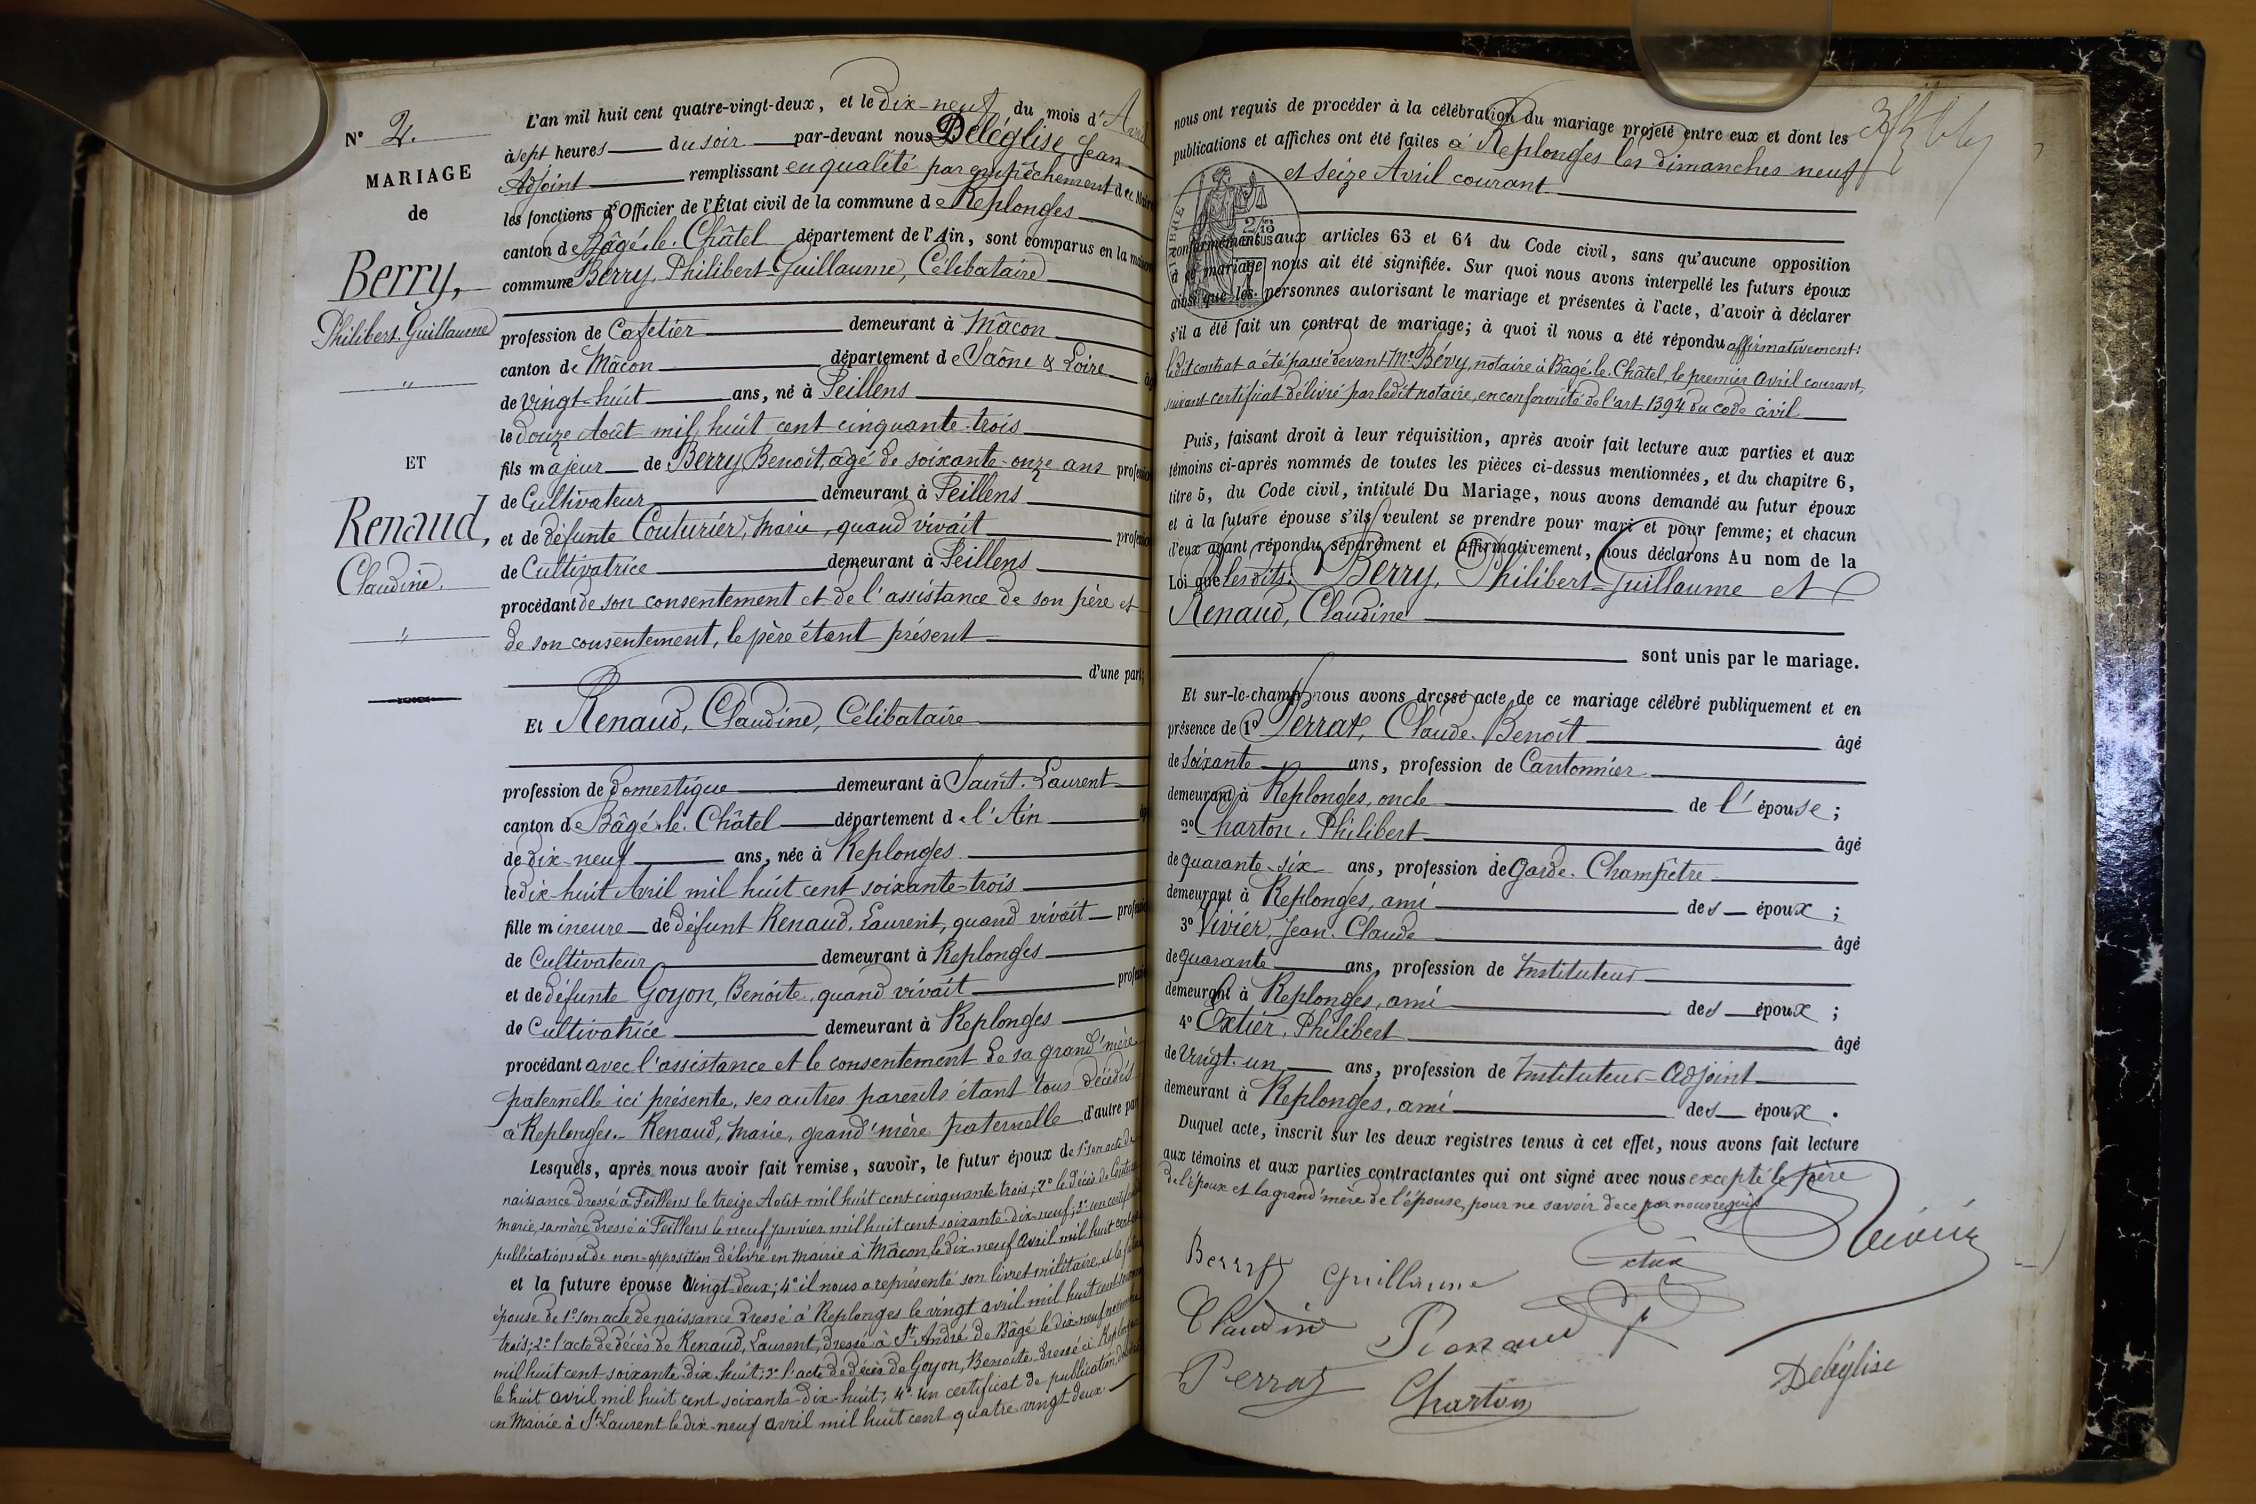 N° 2.
MARIAGE
de
Berry,
Philibert-Guillaume
"
ET
Renaud,
Claudine.
"
L'an mil huit cent quatre-vingt-deux, et le dix-neuf du mois d'Avril
à sept heures du soir par-devant nous Deléglise Jean
Adjoint remplissant en qualité par empêchement du Maire
les fonctions d'Officier de l'État civil de la commune de Replonges
canton de Bâgé-le-Châtel département de l'Ain, sont comparus en la maison
commune Berry, Philibert-Guillaume, Célibataire
profession de Cafetier demeurant à Mâcon
canton de Mâcon département de Saône & Loire âgé
de vingt-huit ans, né à Feillens
le douze Août mil huit cent cinquante-trois
fils majeur de Berry Benoit, âgé de soixante-onze ans profession
de Cultivateur demeurant à Feillens
et de défunte Couturier, Marie, quand vivait profession
de Cultivatrice demeurant à Feillens
procédant de son consentement et de l'assistance de son père et
de son consentement, le père étant présent
d'une part;
Et Renaud, Claudine, Célibataire
profession de domestique demeurant à Saint-Laurent
canton de Bâgé-le-Châtel département de l'Ain âgée
de dix-neuf ans, née à Replonges
le dix-huit Avril mil huit cent soixante-trois
fille mineure de défunt Renaud, Laurent, quand vivait profession
de Cultivateur demeurant à Replonges
et de défunte Goyon, Benoite, quand vivait profession
de Cultivatrice demeurant à Replonges
procédant avec l'assistance et le consentement de sa grand'mère
paternelle ici présente, ses autres parents étant tous décédés
à Replonges.- Renaud, Marie, grand'mère paternelle d'autre part
Lesquels, après nous avoir fait remise, savoir, le futur époux de 1° son acte de
naissance dressé à Feillens le treize Août mil huit cent cinquante trois; 2° le décès de Couturier
Marie, sa mère dressé à Feillens le neuf janvier mil huit cent soixante-dix-neuf; 3° un certificat
publications et de non-opposition délivré en mairie à Mâcon, le dix-neuf avril mil huit cent
et la future épouse vingt-deux; 4° il nous a représenté son livret militaire, et la future
épouse de 1° son acte de naissance dressé à Replonges le vingt avril mil huit cent soixante
trois; 2° l'acte de décès de Renaud, Laurent, dressé à St André de Bâgé le dix-neuf novembre
mil huit cent soixante-dix-huit; 3° l'acte de décès de Goyon, Benoite dressé à Replonges
le huit avril mil huit cent soixante-dix-huit; 4° un certificat de publication délivré
en Mairie à St Laurent le dix-neuf avril mil huit cent quatre vingt deux.
nous ont requis de procéder à la célébration du mariage projeté entre eux et dont les
publications et affiches ont été faites à Replonges les dimanches neuf
et seize Avril courant
TIMBRE
2/10
EN SUS
conformément aux articles 63 et 64 du Code civil, sans qu'aucune opposition
à ce mariage nous ait été signifiée. Sur quoi nous avons interpellé les futurs époux
ainsi que les personnes autorisant le mariage et présentes à l'acte, d'avoir à déclarer
s'il a été fait un contrat de mariage; à quoi il nous a été répondu affirmativement:
ledit contrat a été passé devant Me Bévy, notaire à Bâgé-le-Châtel, le premier avril courant,
suivant certificat délivré par ledit notaire, en conformité de l'art. 1394 du code civil
Puis, faisant droit à leur réquisition, après avoir fait lecture aux parties et aux
témoins ci-après nommés de toutes les pièces ci-dessus mentionnées, et du chapitre 6,
titre 5, du Code civil, intitulé Du Mariage, nous avons demandé au futur époux
et à la future épouse s'ils veulent se prendre pour mari et pour femme; et chacun
d'eux ayant répondu séparément et affirmativement, nous déclarons Au nom de la
Loi que lesdits: Berry, Philibert-Guillaume et
Renaud, Claudine
sont unis par le mariage.
Et sur-le-champ nous avons dressé acte de ce mariage célébré publiquement et en
présence de 1° Perrat, Claude-Benoit âgé
de soixante ans, profession de Cantonnier
demeurant à Replonges, oncle de l'épouse;
2° Charton, Philibert âgé
de quarante-six ans, profession de Garde-Champêtre
demeurant à Replonges, ami des époux;
3° Vivier, Jean-Claude âgé
de quarante ans, profession de Instituteur
demeurant à Replonges, ami des époux;
4° Extier, Philibert âgé
de Vingt-un ans, profession de Instituteur-Adjoint
demeurant à Replonges, ami des époux.
Duquel acte, inscrit sur les deux registres tenus à cet effet, nous avons fait lecture
aux témoins et aux parties contractantes qui ont signé avec nous excepté le père
de l'époux et la grand'mère de l'épouse, pour ne savoir de ce par nous requis
Berry Guillaume
Extier
Vivier
Claudine Renaud
Perrat
Charton
Deléglise